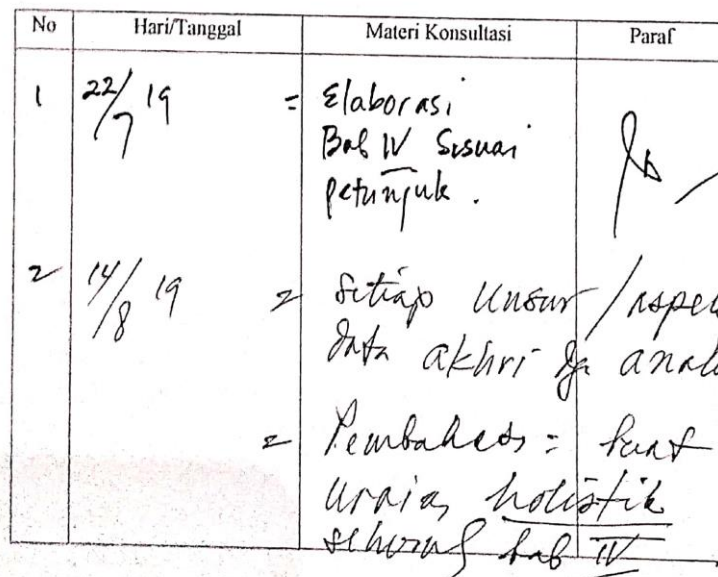 No Hari/Tanggal Materi Konsultasi Paraf
1 22/7 19 = Elaborasi
Bab IV Sesuai
petunjuk.
2 14/8 19 = Setiap Unsur / aspe
data akhri dg anali
= Pembahas : buat
uraian holistik
seluruh bab IV